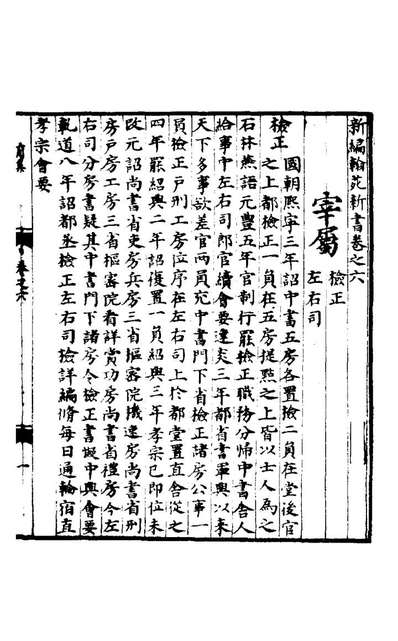 新編翰苑新書卷之六
宰屬
檢正
左右司
檢正　國朝熙寧三年詔中書五房各置檢二員在堂後官
之上都檢正一員在五房提點之上皆以士人為之
石林燕語元豐五年官制行罷檢正職務分歸中書舍人
給事中左右司郎官續會要建炎三年都省言軍興以来
天下多事欲差官兩員充中書門下省檢正諸房公事一
員檢正戶刑工房位序在左右司上於都堂置直舍從之
四年罷紹興二年詔復置一員紹興三年孝宗已即位未
改元詔尚書省吏房兵房三省樞密院機速房尚書省刑
房戶房工房三省樞密院看詳賞功房尚書省禮房令左
右司分房書擬其中書門下諸房令檢正書擬中興會要
乾道八年詔都丞檢正左右司檢詳編脩每日通輪宿直
孝宗會要
卷之六
一